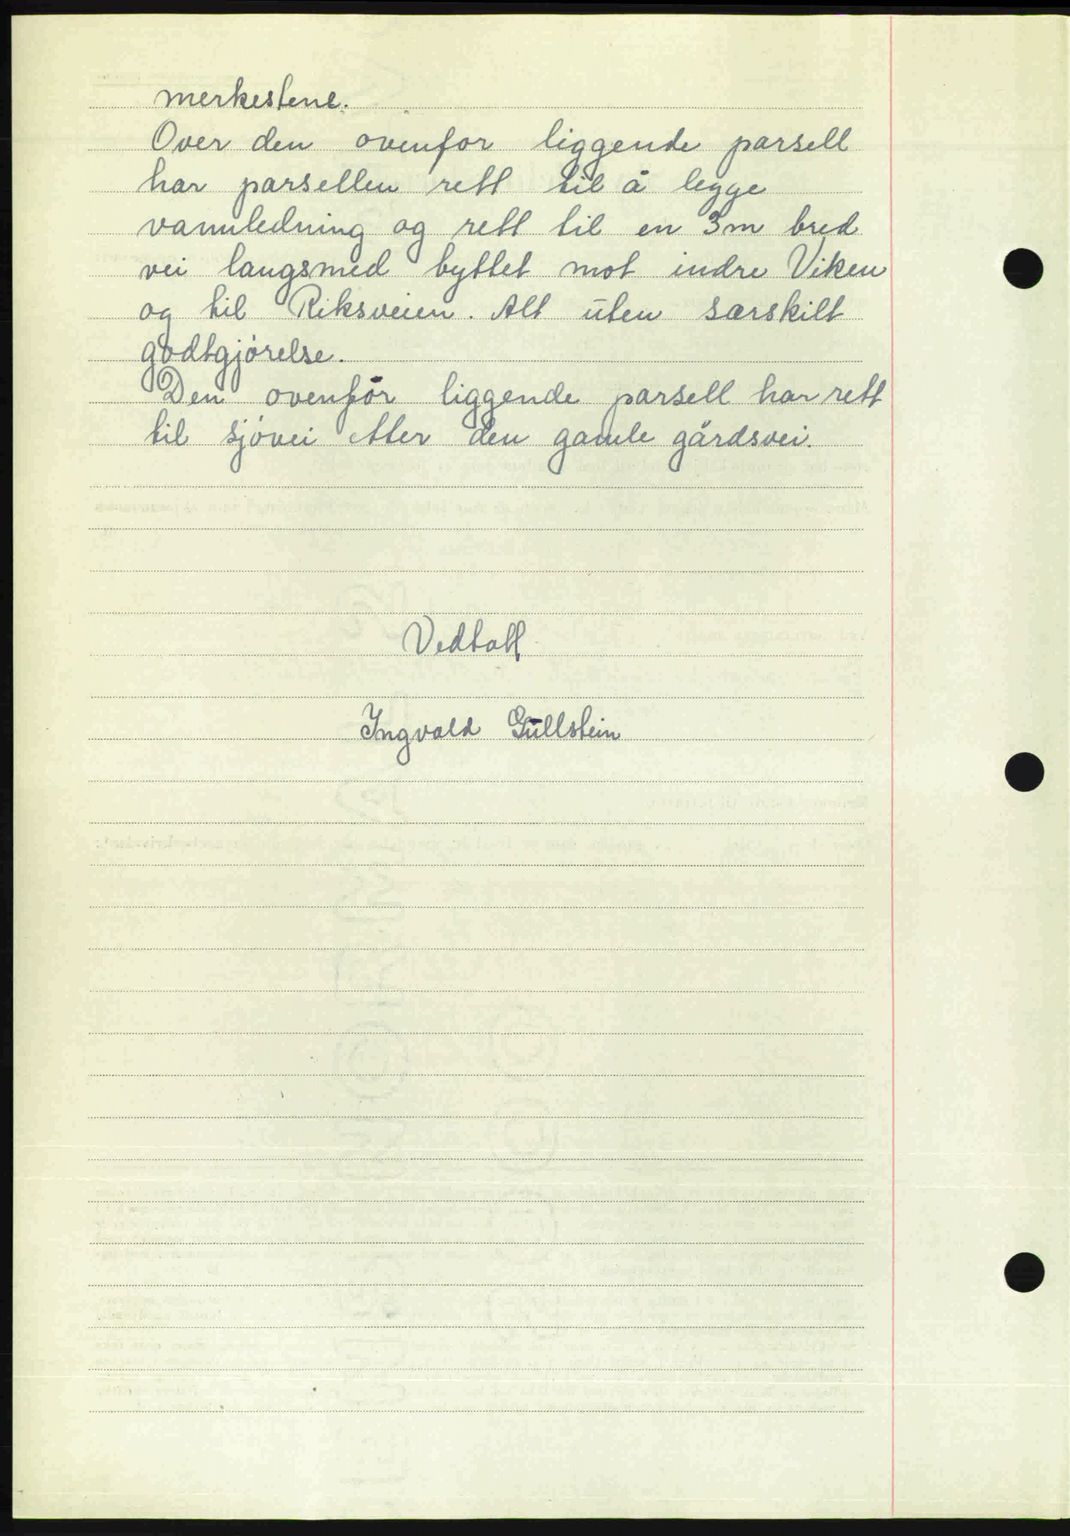 merkestene.
Over den ovenfor liggende parsell
har parsellen rett til å legge
vannledning og rett til en 3m bred
vei langsmed byttet mot indre Viken
og til Riksveien. Alt uten særskilt
godtgjørelse.
Den ovenfor liggende parsell har rett
til sjøvei etter den gamle gårdsvei.
Vedtatt
Ingvald Gullstein